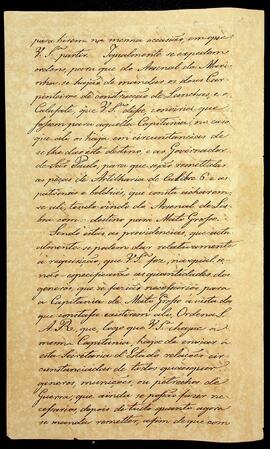 para hirem na mesma occasião, em que
V. S.ª partir. Igualmente se expedem
ordens, para que do Arsenal da Mari-
nha se hajão de mandar os dous Car-
pinteiros de construcção de Lanchas, e o
Calafate, que V. S.ª disse, conviria que
fossem para aquella Capitania, no caso,
que ali os haja em circunstancias de
se lhe dar este destino, e ao Governador
de São Paulo, para que sejão remettidas
as peças de Artilharia de Calibre 6 e as
palamentas, que consta acharem-
se ali, tendo vindo do Arsenal de Lis-
boa com destino para Mato Grosso.
Sendo estas as providencias, que actu-
almente se podem dar relativamente
á requisição, que V. S.ª fez, na qual,
não especificarão as quantidades dos
generos, que se fazião necessarios para
a Capitania de Mato Grosso á vista do
que constasse existirem ali, Ordena S.
A. R. que, logo que V. S.ª chegue a
mesma Capitania, haja de enviar a
esta Secretaria d'Estado relações cir-
cunstanciadas de todos quaesquer
generos, munições, ou petrechos de
Guerra, que ainda se fação fazer ne-
cessarios depois de tudo quanto agora
se manda remetter, afim de que com